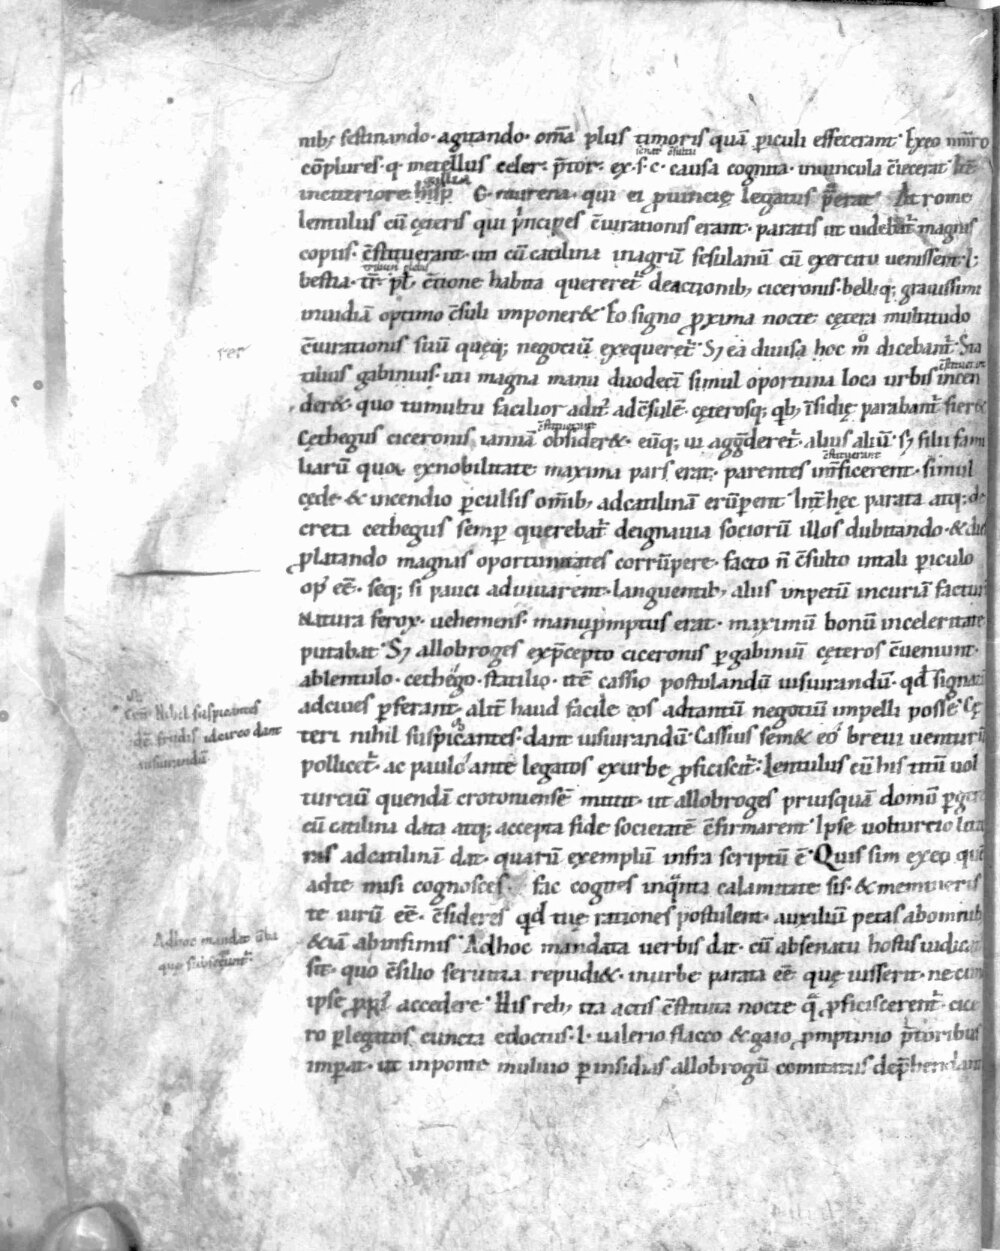 nib; festinando· agitando· om̄a plus timoris quā p̱iculi effecerant· Ex eo nūro
cōplures· q· metellus celer· p̄tor· ex· s· c· causa cognita· inuincula c̄iecerat
senat c̄sultu
inceriore C· murena· qui ei ꝓuincię legatus p̄erat· At rome
lentulus cū cęteris qui p'ncipes c̄iurationis erant· paratis ut uidebat' magnis
copiis· c̄stituerant· uti cū catilina in agrū fesulanū cū exercitu uenissent· l·
tribuni plebis
bestia· tr̄· pl̄· c̄tione habita quereret' deactionib; ciceronis· belliq; grauissimi
inuidiā optimo c̄suli imponer& Eo signo ꝓxima nocte cętera multitudo
c̄iurationis suū quęq; negociū exequeret'· S; ea diuisa hoc mo dicebant'· Sta
tilius gabinius· uti magna manu duodecī simul oportuna loca urbis incen
c̄stituerant
der& quo tumultu facilior adit' adc̄sulē· cęterosq; qb; īsidię parabant' fier&
Cęthegus ciceronis ianuā obsider&· eūq; ui aggderet'· alius aliū· s; filii fami
c̄stituerant
liarū quor exnobilitate maxima pars erat· parentes int̄ficerent· simul
c̄stituerant
cęde & incendio p̱culsis om̄ib; adcatilinā erūp̱ent· Int̄ hęc parata atq; de
creta cethegus semp̱ querebat' deignauia sociorū illos dubitando· & die
ꝓlatando magnas oportunitates corrūpere· facto n̄ c̄sulto intali p̱iculo
op' eē· seq; si pauci adiuuarent· languentib; aliis impetū incuriā facturū
Natura ferox· uehemens· manuꝓmptus erat· maximū bonū inceleritate
putabat· S; allobroges exp̄cepto ciceronis p̱gabiniū cęteros c̄ueniunt·
ablentulo· cethego· statilio· itē cassio postulandū iusiurandū· qd̄ signati
adciues p̱ferant· alit̄ haud facile eos adtantū negociū impelli posse· Cę
teri nihil suspicantes· dant iusiurandū· Cassius sem& eo breui uenturū
pollicet'· ac paulo ante legatos exurbe ꝓficiscit'· Lentulus cū his titū uol
turciū quendā crotoniensē mittit· ut allobroges priusquā domū p̱ger
cū catilina data atq; accepta fide societatē c̄firmarent· Ipse uolturcio litte
ras adcatilinā dat· quarū exemplū infra scriptū ē· Quis sim exeo quē
adte misi cognosces· fac cogites inqnta calamitate sis· & memineris
te uirū eē· c̄sideres qd̄ tuę rationes postulent· auxiliū petas abomnib
& iā abinfimis· Adhoc mandata uerbis dat· cū absenatu hostis iudica
sit· quo c̄silio seruitia repudi&· inurbe parata eē quę iusserit· ne cun
ipse ꝓpi' accedere· His reb; ita actis c̄stituta nocte qa ꝓficiscerent'· cice
ro p̱legatos cuncta edoctus· l· ualerio flacco & gaio pomptinio p̄toribus
imp̱at· ut inponte muluio p̱insidias allobrogū comitatus dep̄hendant
Cęti Nihil suspicantes
idē fraudis idcirco dant
iusiurandū
Adhoc mandat uba
que subsecunt'